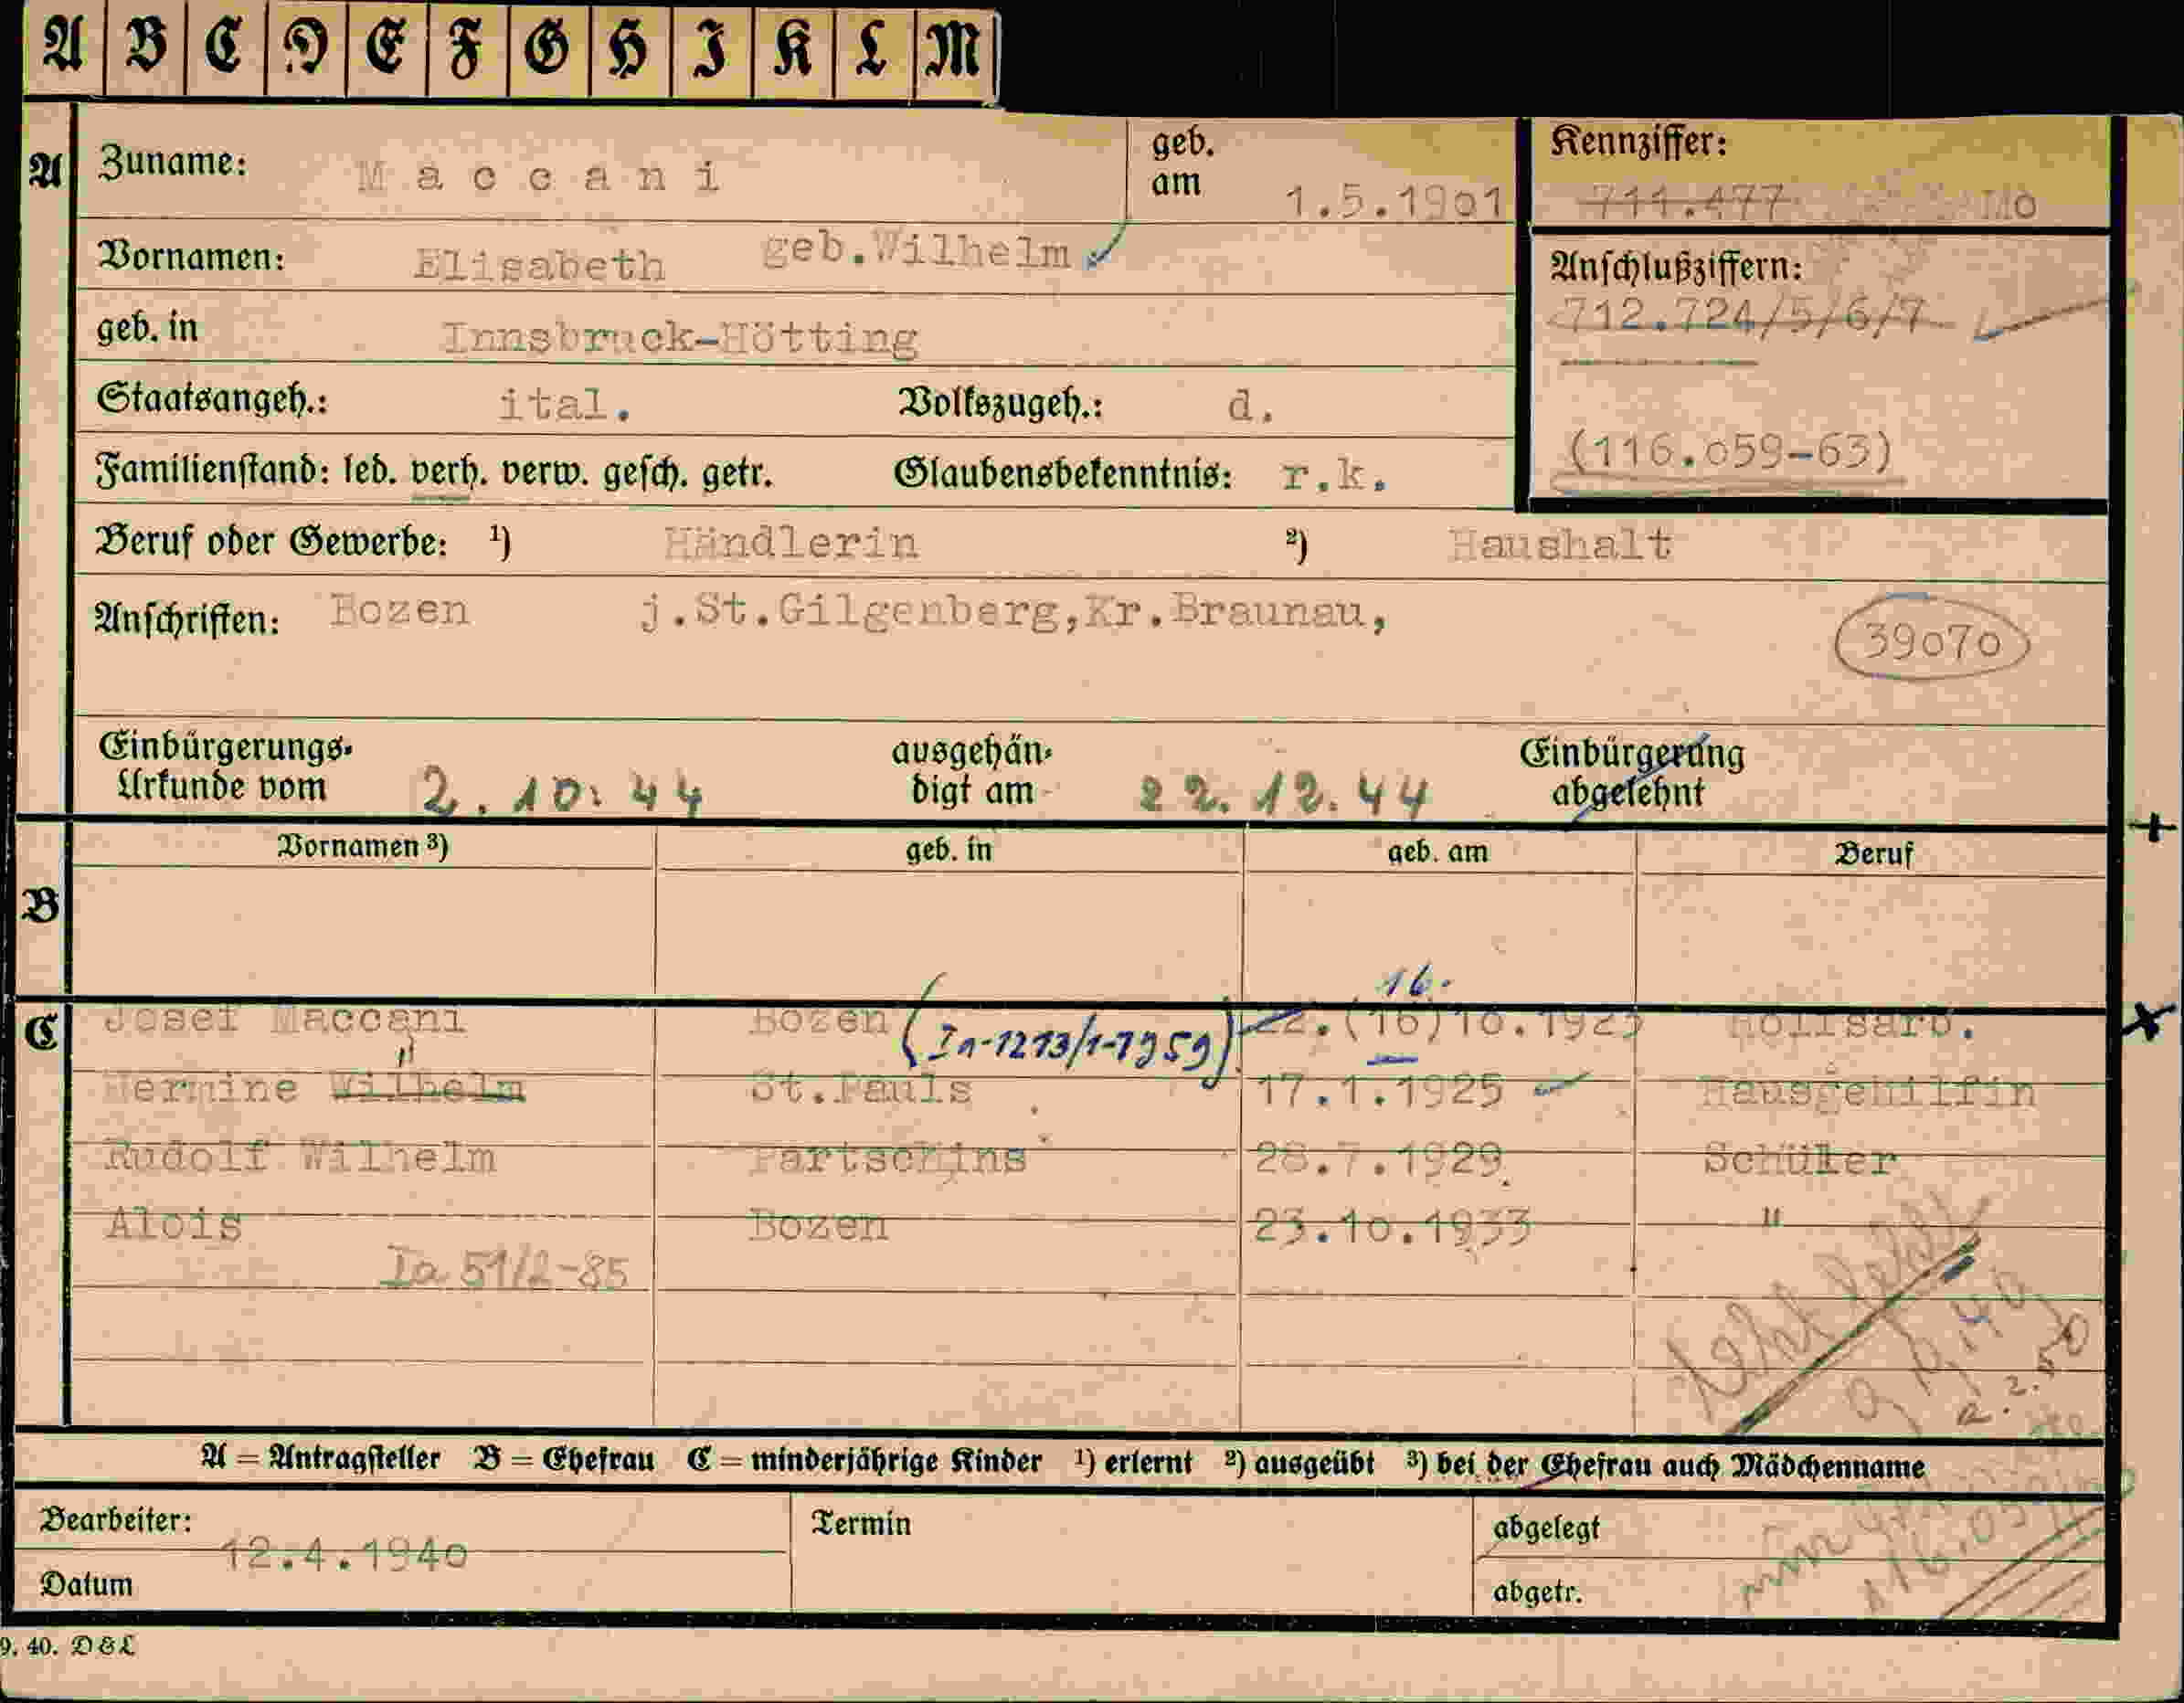 A B C D E F G H I K L M
A Zuname: Maccani geb. am 1.5.1901
Kennziffer: 711.477 Mo
Vornamen: Elisabeth geb.Wilhelm
Anschlußziffern:
712.724/5/6/7
geb. in Innsbruck-Hötting
Staatsangeh.: ital. Volkszugeh.: d.
(116.059-63)
Familienstand: led. verh. verw. gesch. getr. Glaubensbekenntnis: r.k.
Beruf oder Gewerbe: ¹) Händlerin ²) Haushalt
Anschriften: Bozen j.St.Gilgenberg,Kr.Braunau,
39070
Einbürgerungs-Urkunde vom 2.10.44 ausgehändigt am 22.12.44 Einbürgerung abgelehnt
Vornamen ³) geb. in geb. am Beruf
B
16.
C Josef Maccani Bozen (Ia-1213/1-1959) 22.(16)10.1923
"
Hermine Wilhelm St.Pauls 17.1.1925 Hausgehilfin
Rudolf Wilhelm Partschins 28.7.1929 Schüler
Alois Bozen 23.10.1933 "
Ia 51/2-85
A = Antragsteller B = Ehefrau C = minderjährige Kinder ¹) erlernt ²) ausgeübt ³) bei der Ehefrau auch Mädchenname
Bearbeiter: Termin abgelegt
12.4.1940
Datum abgetr.
9. 40. D&L